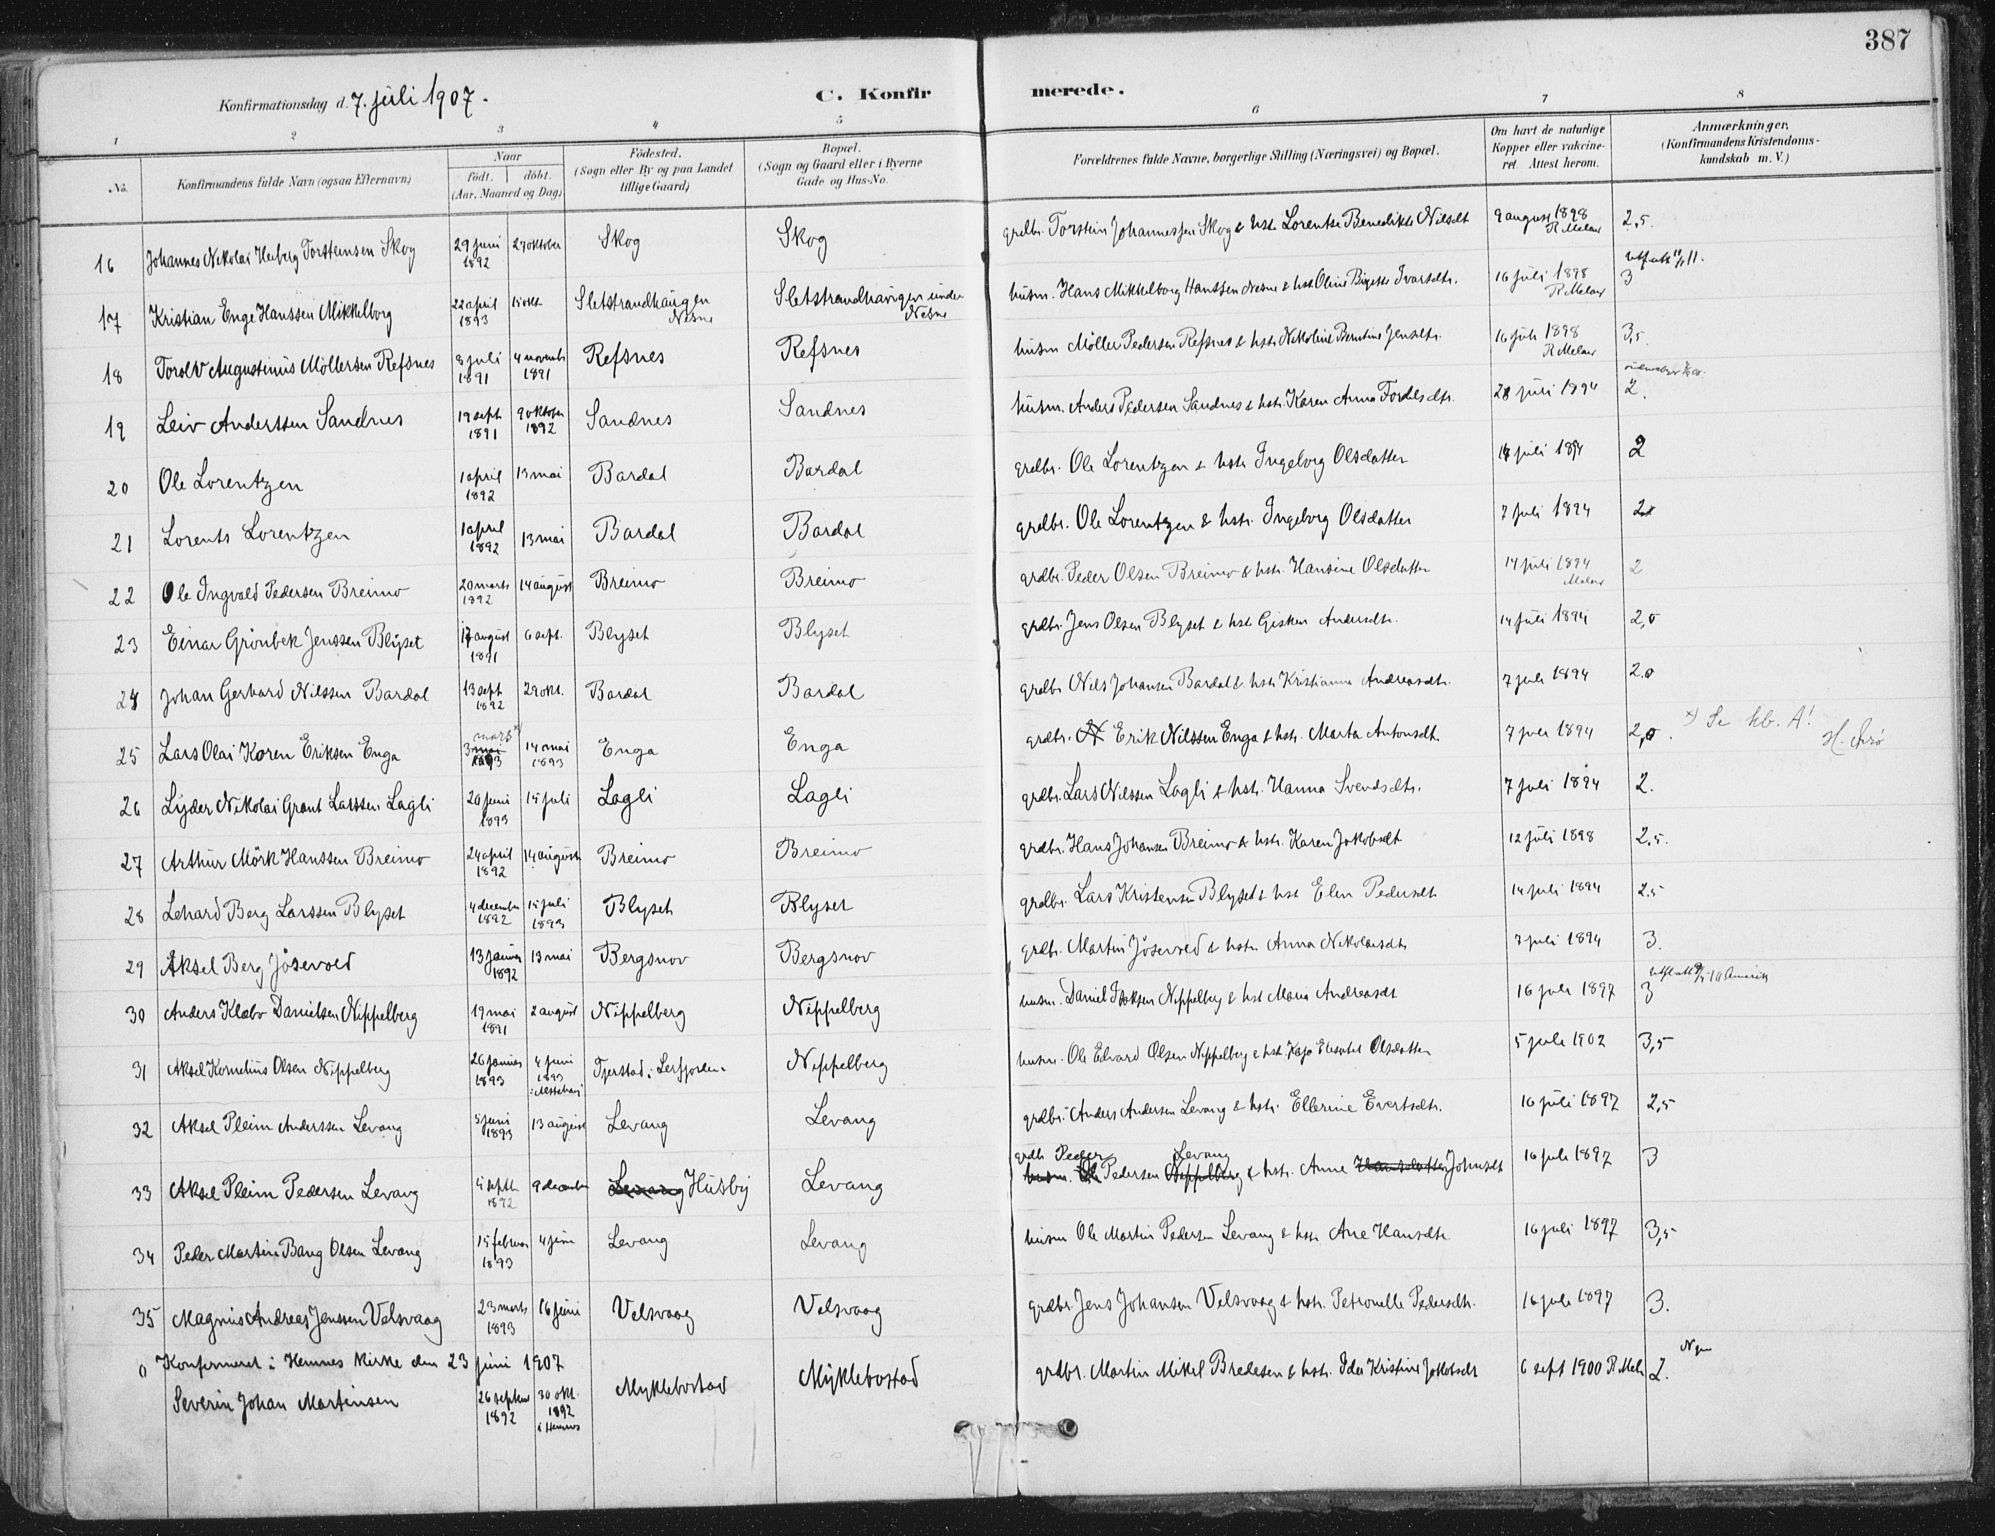 387
Konfirmationsdag d. 7. juli 1907.
C. Konfirmerede.
1 2 3 4 5 6 7 8
No.
Konfirmandens fulde Navn (ogsaa Efternavn)
Naar
födt. döbt.
(Aar, Maaned og Dag)
Födested.
(Sogn eller By og paa Landet
tillige Gaard)
Bopæl.
(Sogn og Gaard eller i Byerne
Gade og Hus-No.
Forældrenes fulde Navne, borgerlige Stilling (Næringsvei) og Bopæl.
Om havt de naturlige
Kopper eller vakcine-
ret. Attest herom.
Anmærkninger.
(Konfirmandens Kristendoms-
kundskab m. V.)
16 Johannes Nikolai Torsteinsen Skog 29 juni 1892 29 oktober Skog Skog grdbr. Torstein Johannessen Skog & hstr. Lorentse Benedikte Nilsdt 9 august 1898 2,5.
17 Kristian Enge Hanssen Mikkelborg 22 april 1893 Sletstrandhaugen Nesne Sletstrandhaugen under Nesne husm. Hans Mikkelborg Hanssen Nesne & hstr Oline Ivarsdtr. 16 juli 1898 3
18 Torolv Augustinus Möllersen Refsnes 8 juli 1891 4 novembr 1891 Refsnes Refsnes husm Möller Pedersen Refsnes & hstr. Nikoline Jensdtr. 16 juli 1898 3,5.
19 Leiv Anderssen Sandnes 19 sept 1891 9 oktober 1892 Sandnes Sandnes husm. Anders Pedersen Sandnes & hstr. Karen Anna 28 juli 1894 2.
20 Ole Lorentzen 1 april 1892 13 mai Bardal Bardal grdbr. Ole Lorentzen & hstr. Ingeborg Olsdatter juli 1894 2
21 Lorents Lorentzen 1 april 1892 13 mai Bardal Bardal grdbr. Ole Lorentzen & hstr. Ingeborg Olsdatter 7 juli 1894
22 Ole Ingvald Pedersen Breimo 20 marts 1892 14 august Breimo Breimo grdbr. Peder Olsen Breimo & hstr. Hansine Olsdatter 14 juli 1894 2
23 Einar Grönbek Jenssen Blyset 17 august 1891 6 sept. Blyset Blyset grdbr. Jens Olsen Blyset & hstr Gisken Andersdtr. 14 juli 1894 2,0
24 Johan Gerhard Nilssen Bardal 13 sept 1892 29 okt. Bardal Bardal grdbr Nils Johansen Bardal & hstr Kristianne Andreasdtr. 7 juli 1894 2.0
25 Lars Olai Koren Eriksen Enga 3 mai mars x) 1893 14 mai 1893 Enga Enga grdbr. N Erik Nilssen Enga & hstr. Marta Antonsdtr 7 juli 1894 2,0. x) Se kb. A!
26 Lyder Nikolai Grant Larssen Lagli 20 juni 1893 15 juli Lagli Lagli grdbr. Lars Nilssen Lagli & hstr. Hanna Svendsdtr. 7 juli 1894 2.
27 Arthur Mörk Hanssen Breimo 24 april 1892 14 august Breimo Breimo grdbr. Hans Johansen Breimo & hstr. Karen Jakobsdt 12 juli 1898 2,5.
28 Lehard Berg Larssen Blyset 4 december 1892 15 juli 1893 Blyset Blyset grdbr. Lars Kristensen Blyset & hstr Elen Pedersdtr 14 juli 1894 2.5
29 Aksel Berg Jösevold 13 januar 1892 13 mai Bergsnov Bergsnov grdbr. Martin Jösevold & hstr Anna Nikolaisdtr 7 juli 1894 3.
30 Anders Klæbo Danielsen Nippelberg 19 mai 1891 2 august Nippelberg Nippelberg husm. Daniel Isaksen Nippelberg & hstr Maria Andreasdt 16 juli 1897 3
31 Aksel Kornelius Olsen Nippelberg 26 januar 1893 4 juni 1893 Tjerstad i Leirfjorden Nippelberg husm. Ole Edvard Olsen Nippelberg & hstr. Kaja Elisabet Olsdatter 5 juli 1902 3,5
32 Aksel Pleim Anderssen Levang 5 juni 1893 13 august Levang Levang grdbr. Anders Andersen Levang & hstr. Ellerine Evertsdtr. 16 juli 1897 2,5
33 Aksel Pleim Pedersen Levang 4 sept. 1892 9 december Levang Husby Levang grdb Peder husm. Ole Pedersen Nippelberg Levang & hstr. Anne Hansdatter Johnsdt 16 juli 1897 3
34 Peder Martin Bang Olsen Levang 15 februar 1893 4 juni Levang Levang husm Ole Martin Pedersen Levang & hstr Ane Hansdtr 16 juli 1897 3,5
35 Magnus Andreas Jenssen Velsvaag 23 marts 1893 16 juni Velsvaag Velsvaag grdbr. Jens Johansen Velsvaag & hstr. Petronelle Pedersdtr. 16 juli 1897 3.
0 Konfirmeret i Hemnes kirke den 23 juni 1907
Severin Johan Martinsen 26 septbr 1892 30 okt. 1892 i Hemnes Myklebostad Myklebostad grdbr. Martin Mikal Bredesen & hstr. Ida Kristine Jakobsdt 6 sept 1900 2.